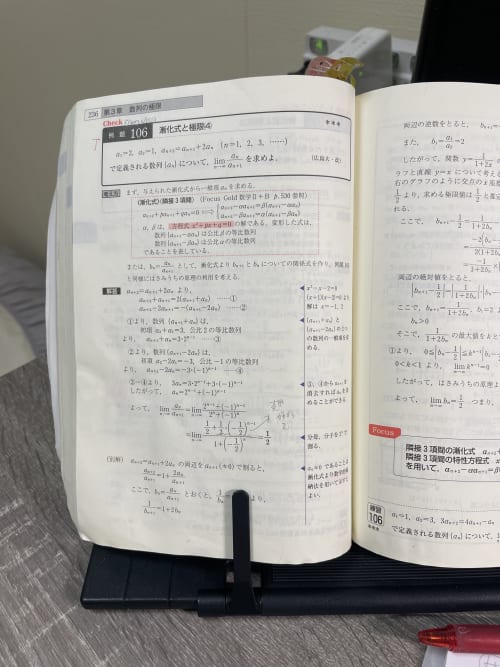 236 第3章 数列の極限
Check
例題 106 漸化式と極限④ ***
a₁=2, a₂=1, aₙ₊₂=aₙ₊₁+2aₙ (n=1, 2, 3, ……)
で定義される数列{aₙ}について, lim[n→∞] aₙ/aₙ₊₁ を求めよ. (広島大・改)
考え方 まず,与えられた漸化式から一般項 aₙ を求める.
〈漸化式〉(隣接3項間) (Focus Gold 数学Ⅱ+B p.530 参照)
aₙ₊₂+paₙ₊₁+qaₙ=0 ⇔ {aₙ₊₂−αaₙ₊₁=β(aₙ₊₁−αaₙ)
aₙ₊₂−βaₙ₊₁=α(aₙ₊₁−βaₙ)
α, β は, 方程式 x²+px+q=0 の解である.変形した式は,
数列{aₙ₊₁−αaₙ}は公比βの等比数列
数列{aₙ₊₁−βaₙ}は公比αの等比数列
であることを表している.
または, bₙ=aₙ/aₙ₊₁ として,漸化式より bₙ₊₁ と bₙ についての関係式を作り,
と同様にはさみうちの原理の利用を考える.
解答 aₙ₊₂=aₙ₊₁+2aₙ より,
aₙ₊₂+aₙ₊₁=2(aₙ₊₁+aₙ) ……①
aₙ₊₂−2aₙ₊₁=−(aₙ₊₁−2aₙ) ……②
x²−x−2=0
(x+1)(x−2)=0 より
解は x=−1, 2
①より,数列{aₙ₊₁+aₙ}は,
初項 a₂+a₁=3, 公比2の等比数列
より, aₙ₊₁+aₙ=3·2ⁿ⁻¹ ……③
{aₙ₊₁+aₙ}と
{aₙ₊₁−2aₙ}の2つ
の数列の一般項を求
める.
②より,数列{aₙ₊₁−2aₙ}は,
初項 a₂−2a₁=−3, 公比−1の等比数列
より, aₙ₊₁−2aₙ=−3·(−1)ⁿ⁻¹ ……④
③−④より, 3aₙ=3·2ⁿ⁻¹+3·(−1)ⁿ⁻¹
したがって, aₙ=2ⁿ⁻¹+(−1)ⁿ⁻¹
③,④から aₙ₊₁ を
消去すれば aₙ を求
めることができる.
よって, lim[n→∞] aₙ/aₙ₊₁ = lim[n→∞] (2ⁿ⁻¹+(−1)ⁿ⁻¹)/(2ⁿ+(−1)ⁿ)
=lim[n→∞] (1/2+1/2·(−1/2)ⁿ⁻¹)/(1+(−1/2)ⁿ) = 1/2
分母,分子を2ⁿで
割る.
(別解) aₙ₊₂=aₙ₊₁+2aₙ の両辺を aₙ₊₁(≠0) で割ると,
aₙ₊₂/aₙ₊₁=1+2aₙ/aₙ₊₁
ここで, bₙ=aₙ/aₙ₊₁ とおくと, より,
1/bₙ₊₁=1+2bₙ
aₙ≠0 であることは
漸化式より数学的帰
納法を用いて示すと
よい.
両辺の逆数をとると, bₙ₊₁=
また, b₁=a₁/a₂=2
したがって,関数 y=1/(1+2x)
ラフと直線 y=x について考える
右のグラフのように交点の x 座標
1/2 より,求める極限値は 1/2 と
れる.
ここで, bₙ₊₁−1/2=1/(1+2bₙ)
両辺の絶対値をとると,
bₙ>0
そこで, 1/(1+2bₙ) の最大値を k と
①より, 0≦|bₙ−1/2|≦kⁿ⁻¹
0<k<1 より, lim[n→∞] kⁿ⁻¹=0
したがって,はさみうちの原理よ
よって, lim[n→∞] bₙ=1/2, つまり,
Focus
隣接3項間の漸化式
隣接3項間の特性方程式
を用いて, aₙ₊₂−αaₙ₊₁=β(
練習 106 *** a₁=1, a₂=3, 3aₙ₊₂=4aₙ₊₁−aₙ
で定義される数列{aₙ}について,